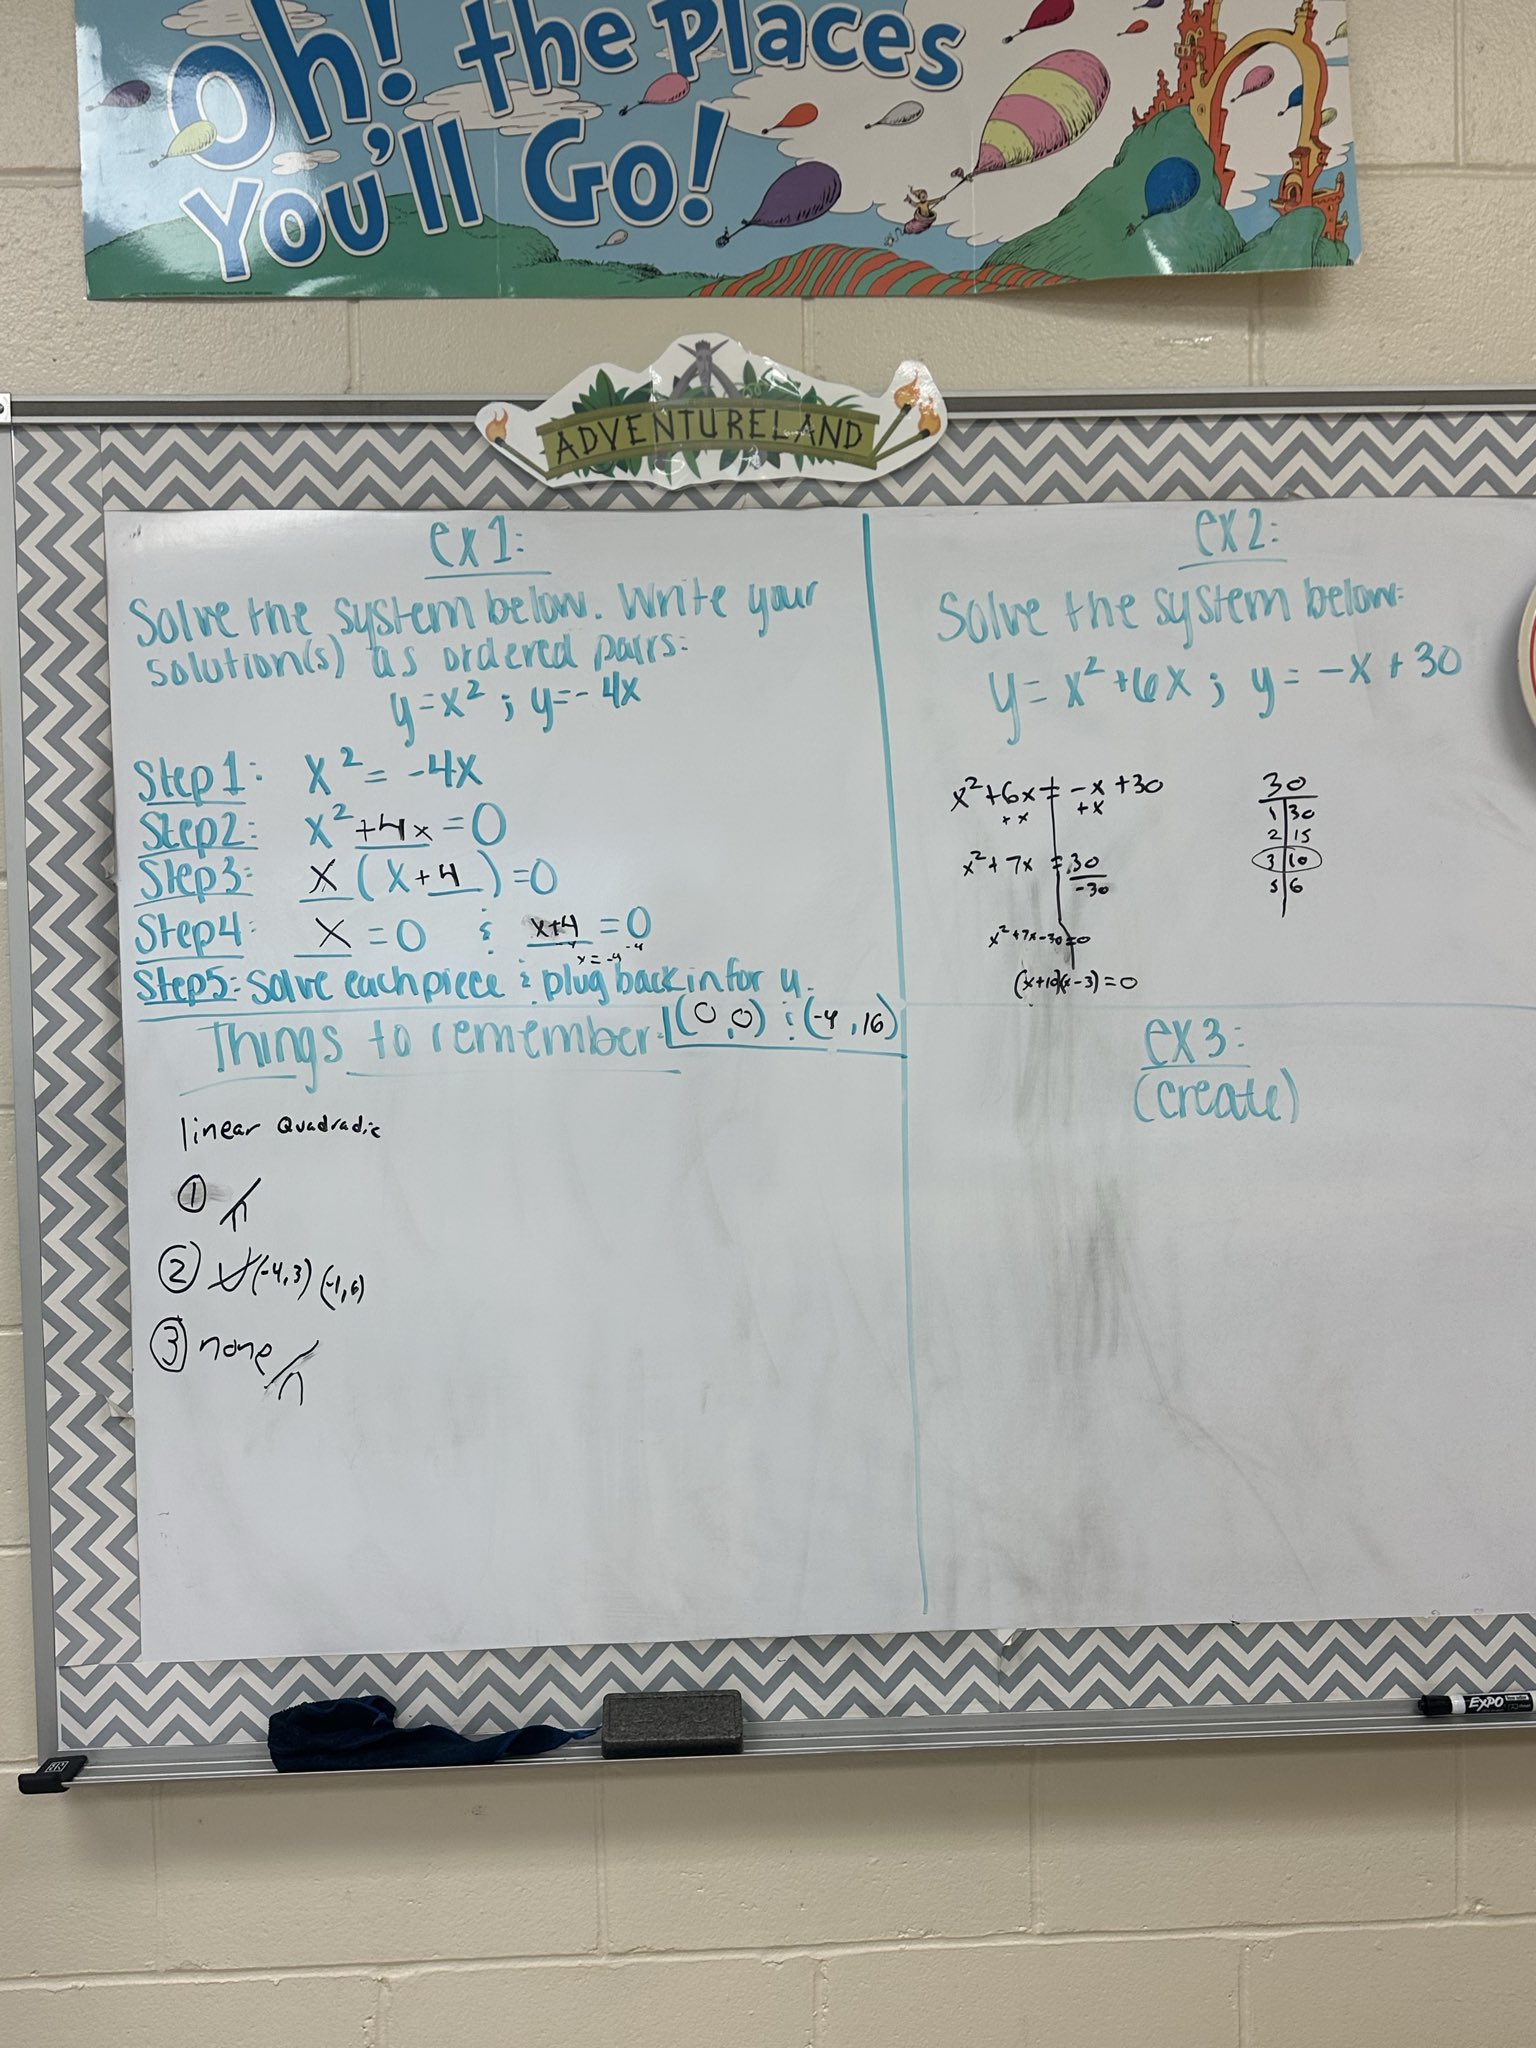 Oh! the Places
You'll Go!
ADVENTURELAND
ex1:
Solve the system below. Write your
solution(s) as ordered pairs:
y=x² ; y=-4x
Step1: x² = -4x
Step2: x² +4x =0
Step3: x (x+4)=0
Step4: x =0 & x+4 =0
-4 -4
x = -4
Step5: Solve each piece & plug back in for y.
(0,0) & (-4,16)
Things to remember:
linear Quadradic
①
② (-4,3) (-1,6)
③ none
ex2:
Solve the system below:
y= x²+6x ; y= -x + 30
x²+6x = -x +30
+x +x
x²+7x = 30
-30
x²+7x-30=0
(x+10)(x-3)=0
30
1 30
2 15
3 10
5 6
ex3:
(create)
EXPO